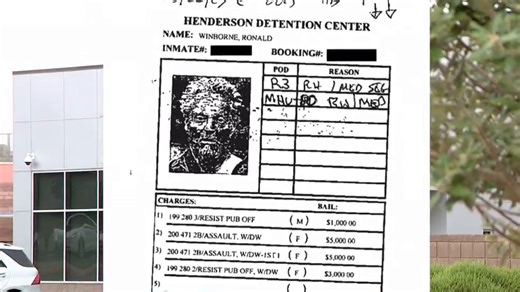 HENDERSON DETENTION CENTER
NAME: WINBORNE, RONALD
INMATE#: BOOKING#:
POD REASON
R3 RH / MED SEG
MHU RH / MED
CHARGES: BAIL:
1) 199 280 3/RESIST PUB OFF ( M ) $1,000 00
2) 200 471 2B/ASSAULT, W/DW ( F ) $5,000 00
3) 200 471 2B/ASSAULT, W/DW-1ST1 ( F ) $5,000 00
4) 199 280 2/RESIST PUB OFF, W/DW ( F ) $3,000 00
5) ( )